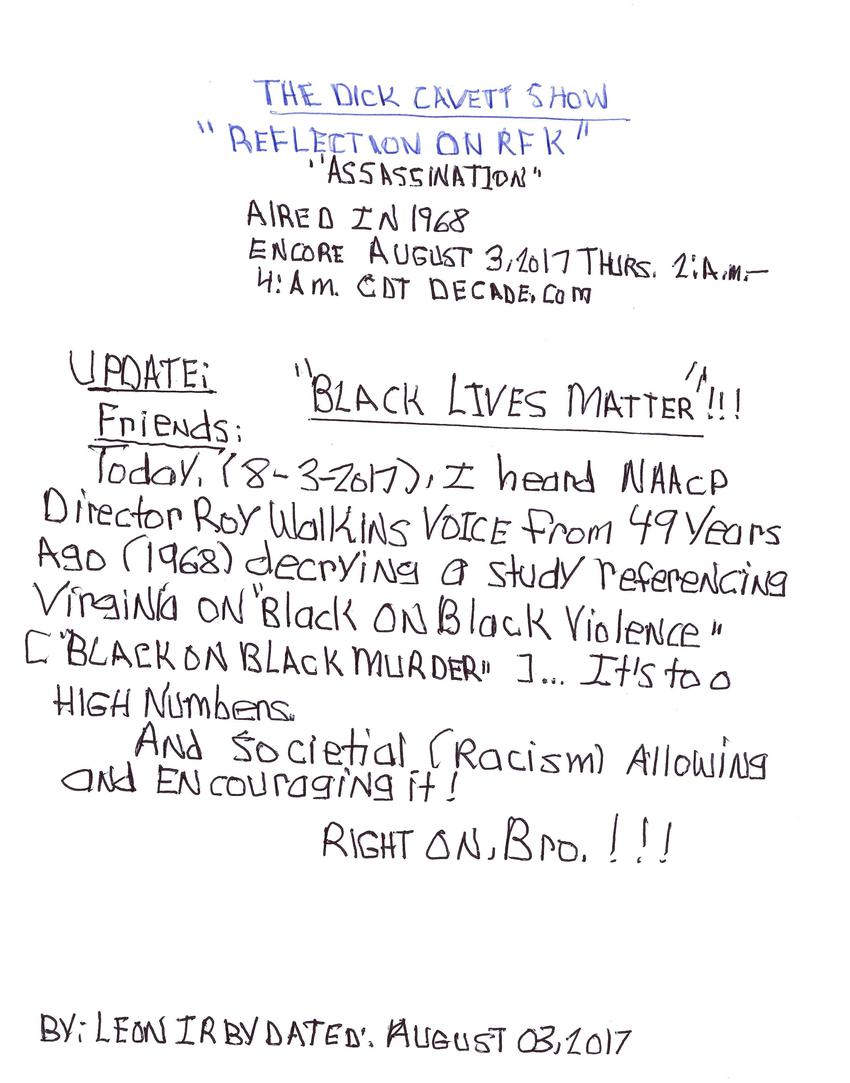 THE DICK CAVETT SHOW
"REFLECTION ON RFK"
"ASSASSINATION"
AIRED IN 1968
ENCORE AUGUST 3,2017 THURS. 2:A.M.—
4:AM. CDT DECADE,COM
UPDATE: "BLACK LIVES MATTER"!!!
Friends:
Today, (8-3-2017), I heard NAACP
Director Roy Walkins VOICE from 49 Years
Ago (1968) decrying a study referencing
Virginia ON "Black ON Black Violence"
["BLACK ON BLACK MURDER"]... It's too
HIGH Numbers.
And Societial (Racism) Allowing
and ENcouraging it!
RIGHT ON, Bro. !!!
BY: LEON IRBY DATED: AUGUST 03,2017